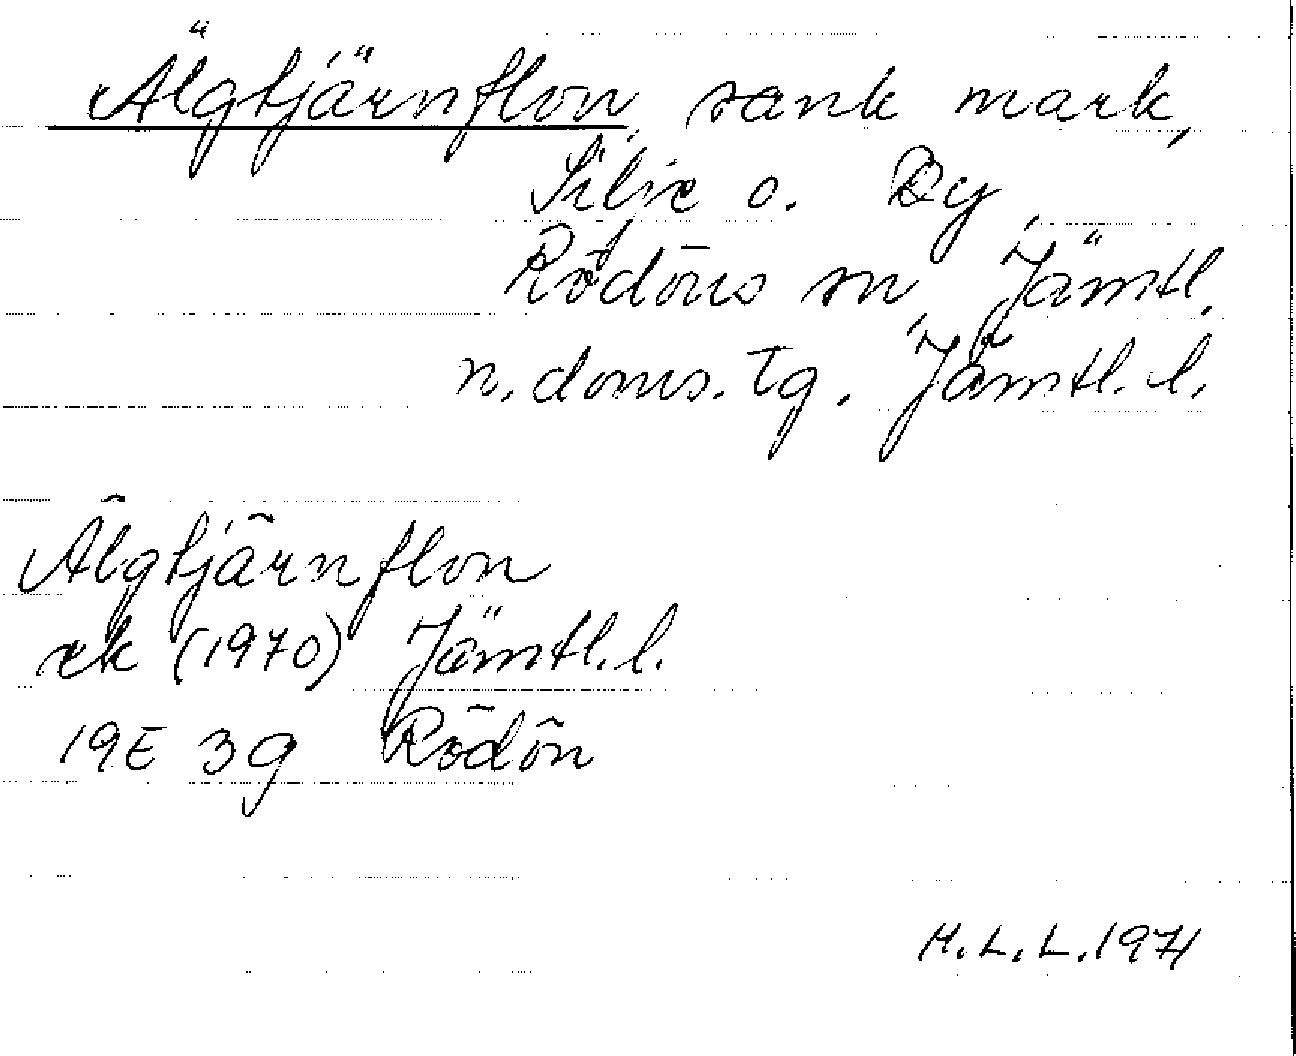 Älgtjärnflon, sank mark,
Silje o. By,
Rödöns sn, Jämtl.
n. doms. tg. Jämtl. l.
Älgtjärnflon
ek (1970) Jämtl. l.
19E 3g Rödön
H. L. L. 1971